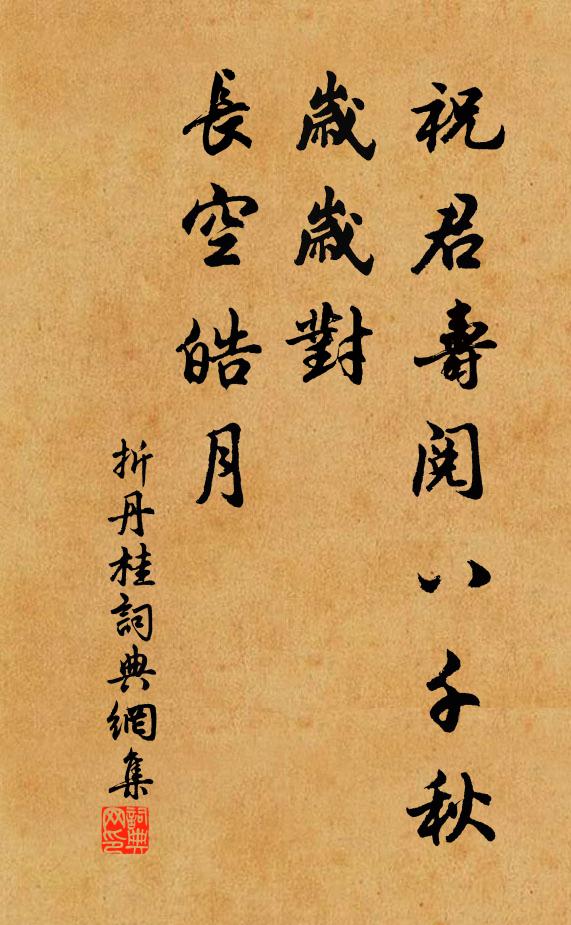 祝君壽閱八千秋
歲歲對
長空皓月
折丹桂詞典網集
詞典网印